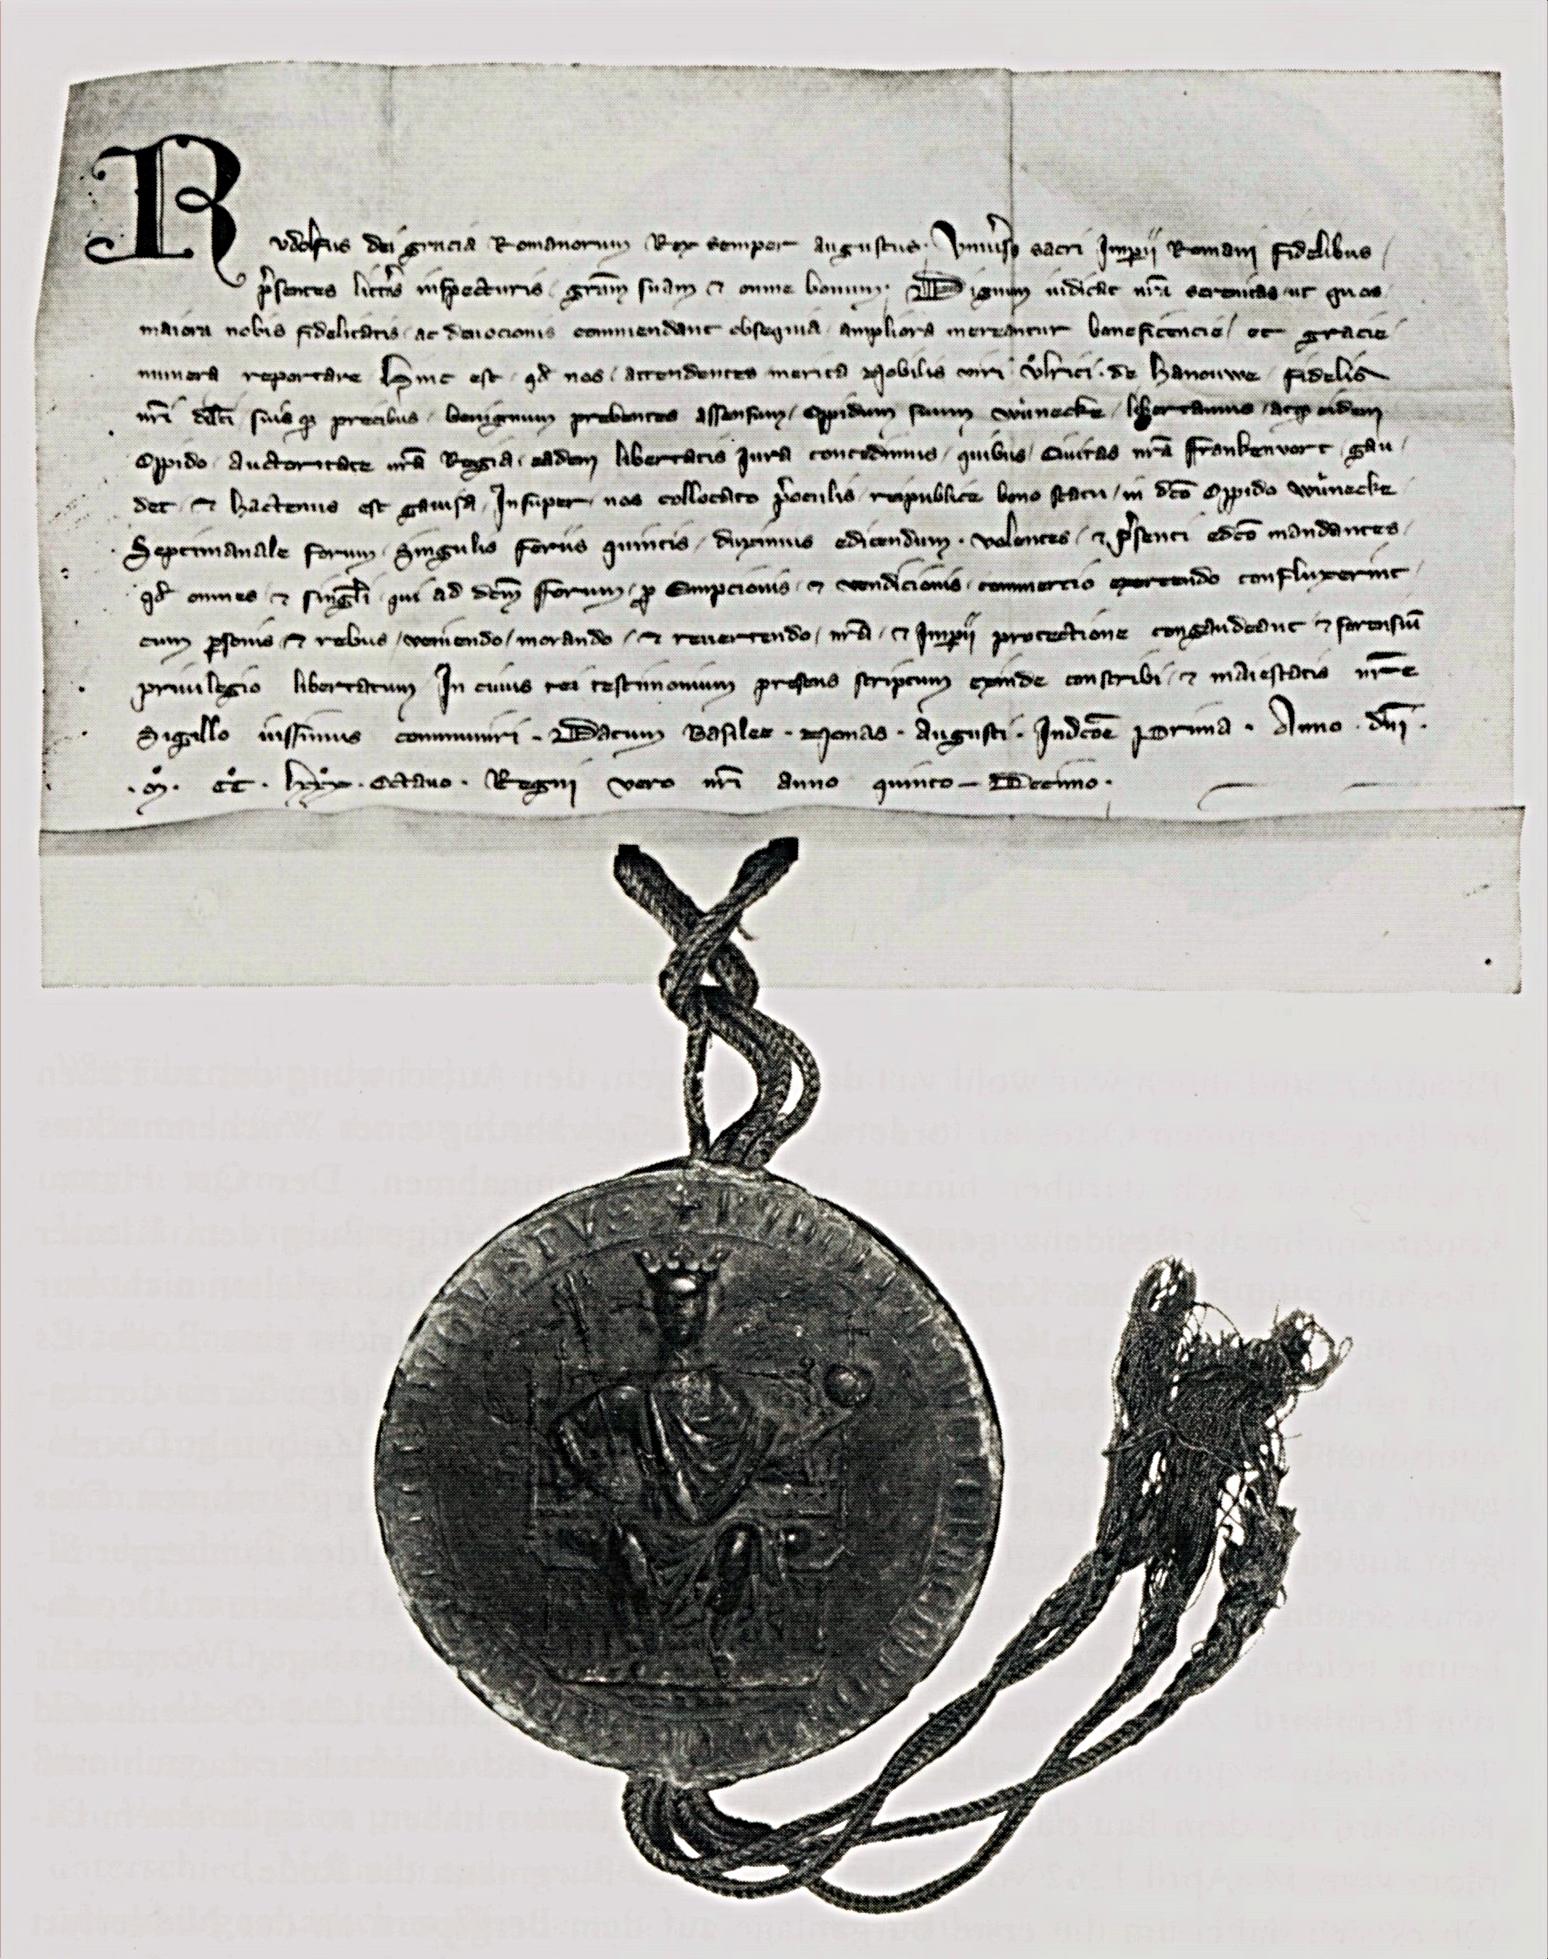 Rudolfus dei gracia Romanorum Rex semper augustus. Univ̉sis sacri Imp̄ii Romani fidelibus
p̉sentes litt̉as inspecturis gr̄am suam ⁊ omne bonum. Dignum iudicat nr̄a serenitas ut quos
maiora nobis fidelitatis ac deuocionis commendant obsequia ampliora mereantur beneficencie et gracie
munera reportare Hinc est qd̄ nos attendentes merita Nobilis viri Vͦlrici de Hanouwe fidelis
nr̄i dil̄ci suisqꝫ precibus benignum prebentes assensum Oppidum suum Wuͤnecke libertamus acqꝫ eidem
Oppido auctoritate nr̄a Regia eadem libertatis Jura concedimus quibus Ciuitas nr̄a Frankenvort gau
det ⁊ hactenus est gauisa Insuper nos collocato p̉oculis reipublice bono statu in dc̄o Oppido Wuͤnecke
Septimanale forum Singulis feriis quintis duximus edicendum. volentes ⁊ p̉senti edc̄o mandantes
qd̄ omnes ⁊ singl̄i qui ad dc̄m Forum ꝓ Empcionis ⁊ vendicionis commercio exercendo confluxerint
cum ꝑsonis ⁊ rebus veniendo morando ⁊ reuertendo nr̄a ⁊ Imp̄ii protectione congaudeant ⁊ forensiū
priuilegio libertatum In cuius rei testimonium presens scriptum exinde conscribi ⁊ maiestatis nr̄e
Sigillo iussimus communiri. Datum Basilee. Nonas. Augusti. Indc̄oe Prima. Anno. dn̄i.
.Mͦ. CCͦ. Lxxxͦ. Octauo. Regni vero nr̄i anno quinto Decimo.